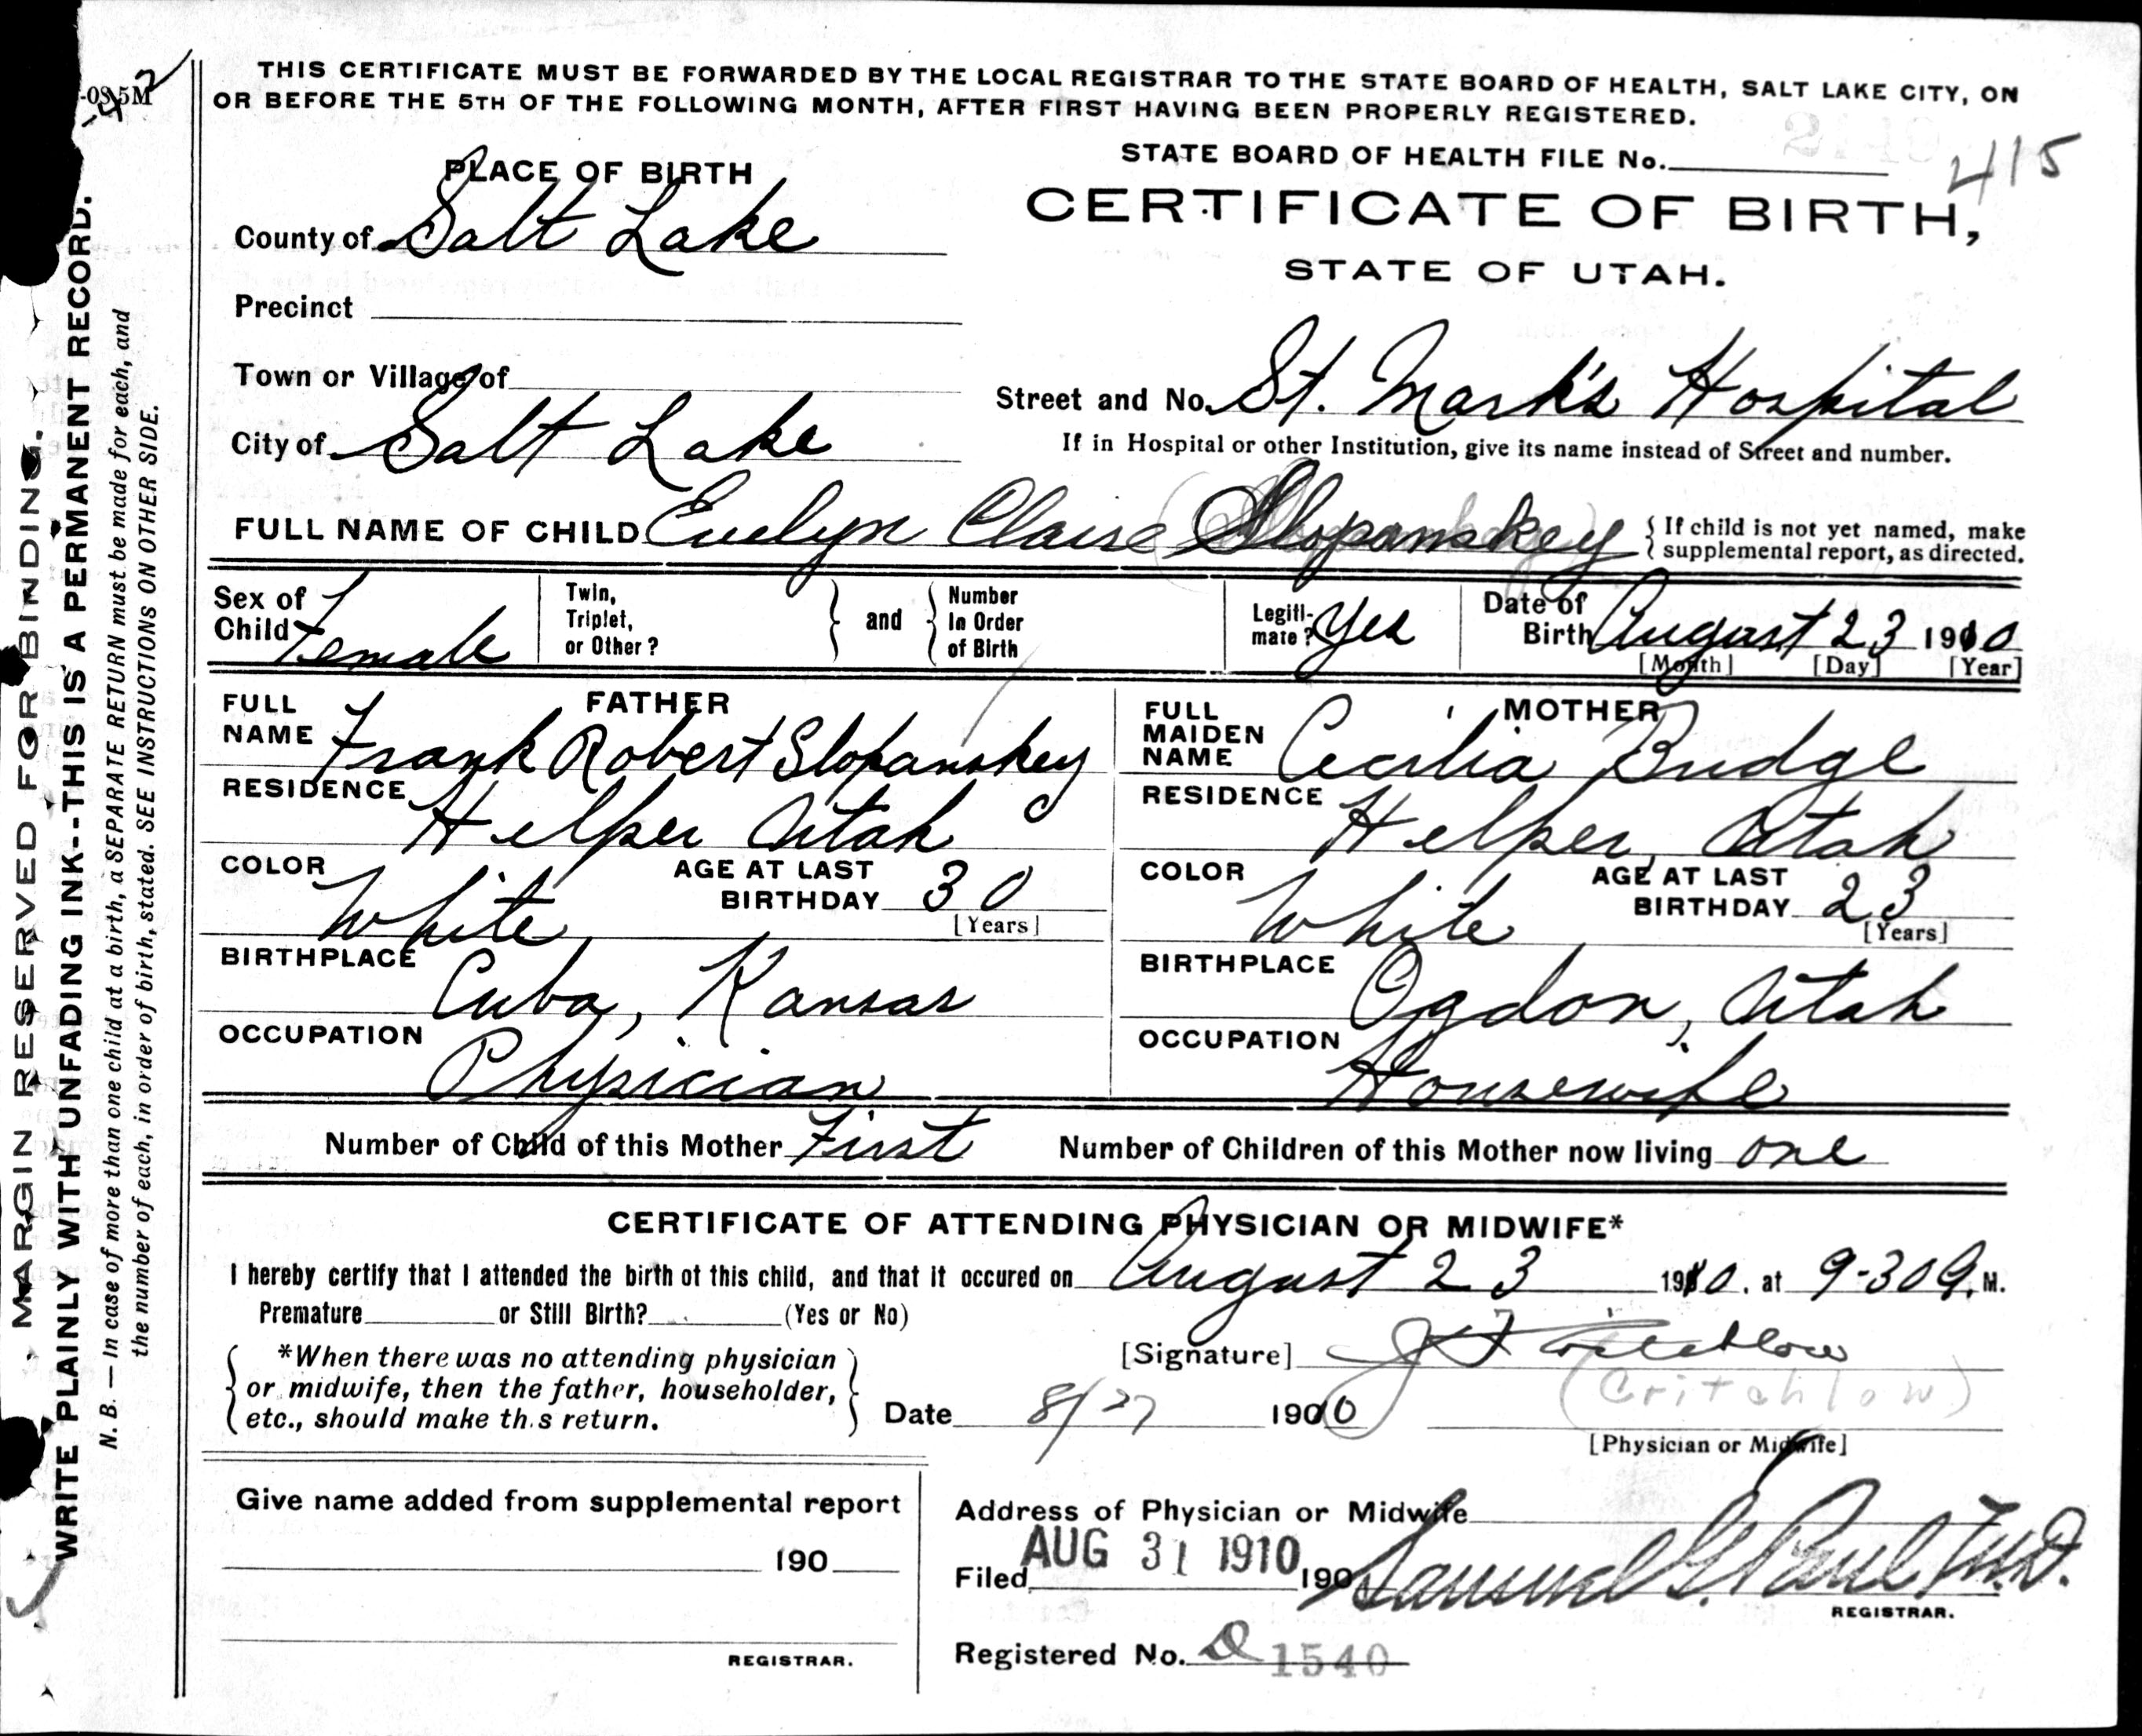 THIS CERTIFICATE MUST BE FORWARDED BY THE LOCAL REGISTRAR TO THE STATE BOARD OF HEALTH, SALT LAKE CITY, ON
OR BEFORE THE 5TH OF THE FOLLOWING MONTH, AFTER FIRST HAVING BEEN PROPERLY REGISTERED.
STATE BOARD OF HEALTH FILE No. 415
PLACE OF BIRTH
CERTIFICATE OF BIRTH,
STATE OF UTAH.
County of Salt Lake
Precinct
Town or Village of
Street and No. St. Mark's Hospital
City of Salt Lake
If in Hospital or other Institution, give its name instead of Street and number.
FULL NAME OF CHILD Evelyn Claire Slopanskey
If child is not yet named, make
supplemental report, as directed.
Sex of
Child Female
Twin,
Triplet,
or Other?
and
Number
In Order
of Birth
Legiti-
mate? Yes
Date of
Birth August 23 1910
[Month] [Day] [Year]
FATHER
FULL
NAME Frank Robert Slopanskey
RESIDENCE
Helper Utah
COLOR
White
AGE AT LAST
BIRTHDAY 30
[Years]
BIRTHPLACE
Cuba, Kansas
OCCUPATION
Physician
MOTHER
FULL
MAIDEN
NAME Cecilia Budge
RESIDENCE
Helper, Utah
COLOR
White
AGE AT LAST
BIRTHDAY 23
[Years]
BIRTHPLACE
Ogdon, Utah
OCCUPATION
Housewife
Number of Child of this Mother First Number of Children of this Mother now living one
CERTIFICATE OF ATTENDING PHYSICIAN OR MIDWIFE*
I hereby certify that I attended the birth of this child, and that it occured on August 23 1910. at 9-30 a. M.
Premature or Still Birth? (Yes or No)
*When there was no attending physician
or midwife, then the father, householder,
etc., should make this return.
[Signature] J F Critchlow
(Critchlow)
Date 8/27 1910
[Physician or Midwife]
Give name added from supplemental report
190
REGISTRAR.
Address of Physician or Midwife
Filed AUG 31 1910 190 Samuel G. Paul M.D.
REGISTRAR.
Registered No. 1540
MARGIN RESERVED FOR BINDING.
WRITE PLAINLY WITH UNFADING INK--THIS IS A PERMANENT RECORD.
N. B. — In case of more than one child at a birth, a SEPARATE RETURN must be made for each, and
the number of each, in order of birth, stated. SEE INSTRUCTIONS ON OTHER SIDE.